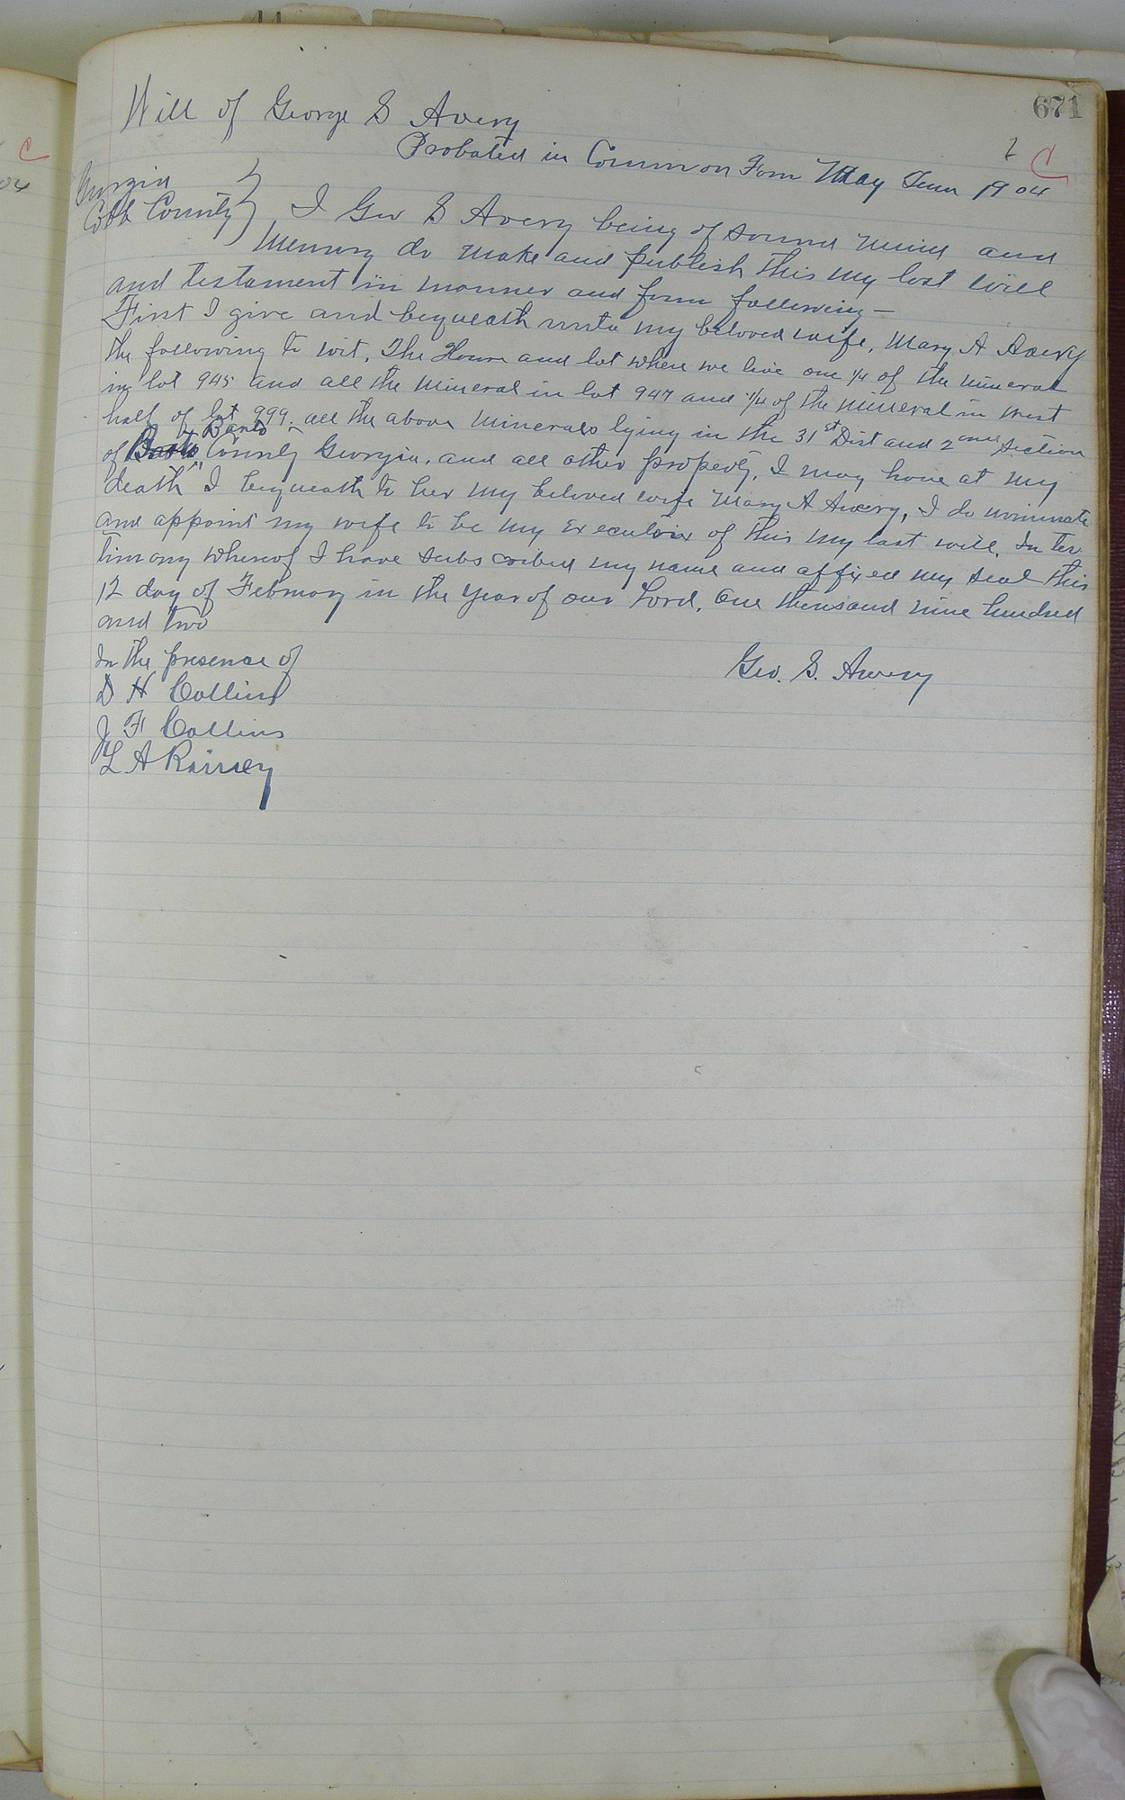 671
Will of George S Avery
Probated in Common Form May Term 1904
C
Georgia
Cobb County } I Geo S Avery being of sound mind and
Memory do make and publish this my last will
and testament in manner and form following—
First I give and bequeath unto my beloved wife, Mary A Avery
the following to wit, The House and lot where we live one 1/4 of the mineral
in lot 945 and all the mineral in lot 947 and 1/4 of the mineral in west
half of lot 999. all the above minerals lying in the 31st Dist and 2ond Section
of Banks County Georgia, and all other property, I may have at my
death I bequeath to her my beloved wife Mary A Avery, I do nominate
and appoint my wife to be my Executrix of this my last will, In tes
timony whereof I have subscribed my name and affixed my seal this
12 day of February in the year of our Lord, One thousand nine hundred
and two
In the presence of
Geo. S. Avery
D H Collins
J F Collins
L A Rainey
C
04